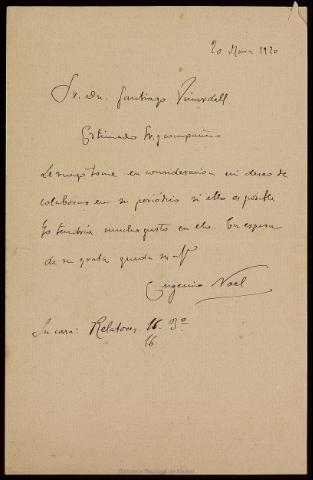 20 Marzo 1920
Sr. Dn. Santiago Vinardell
Estimado Sr. y compañero
Le ruego tome en consideración mi deseo de
colaborar en su periódico si ello es posible
Yo tendría mucho gusto en ello. En espera
de su grata queda su
Eugenio Noel
Su casa: Relatores 16. 3º
16
Biblioteca Regional de Madrid